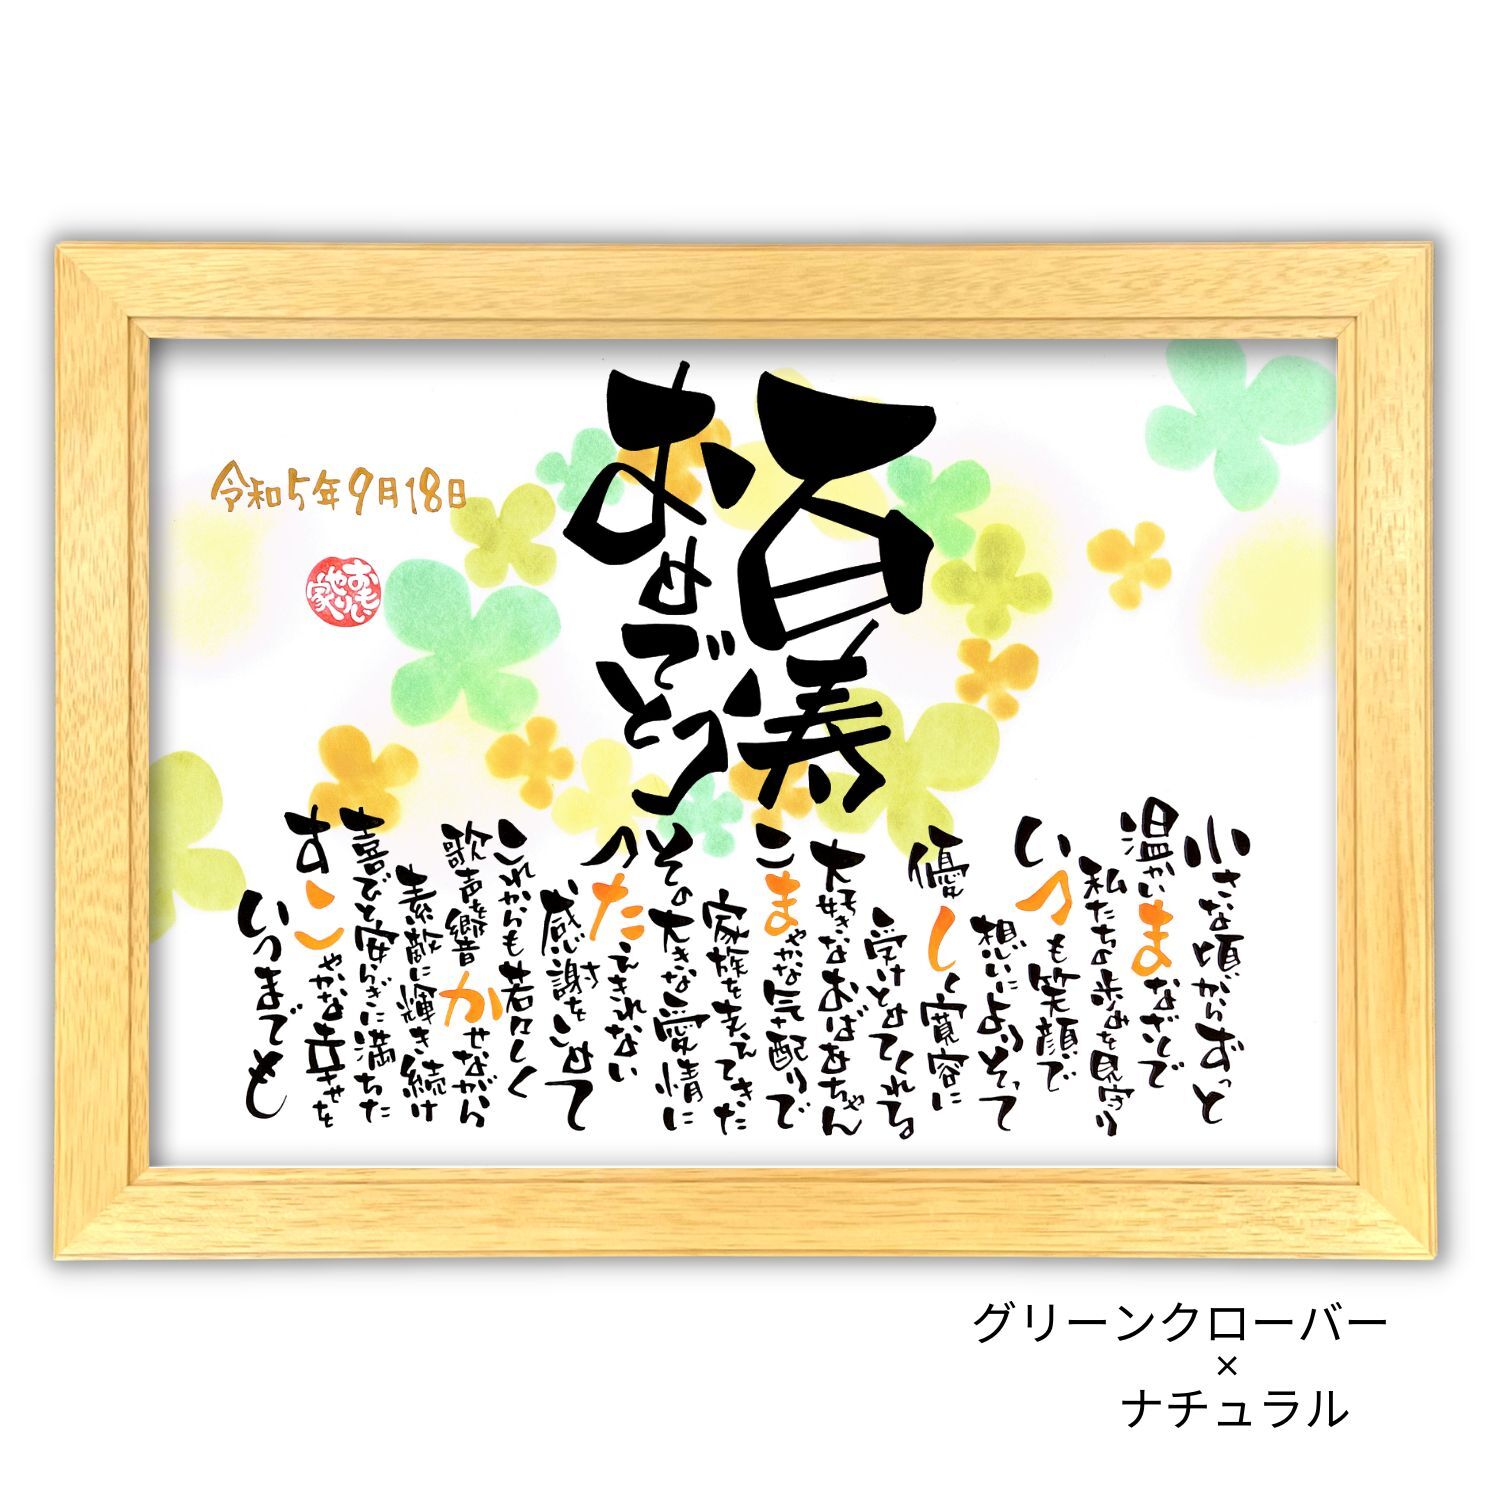 百寿
おめでとう
令和5年9月18日
おもいやり家
小さな頃からずっと
温かいまなざしで
私たちの歩みを見守り
いつも笑顔で
想いによりそって
優しく寛容に
受けとめてくれる
大好きなおばあちゃん
こまやかな気配りで
家族を支えてきた
その大きな愛情に
つたえきれない
感謝をこめて
これからも若々しく
歌声を響かせながら
素敵に輝き続け
喜びと安らぎに満ちた
すこやかな幸せを
いつまでも
グリーンクローバー
×
ナチュラル